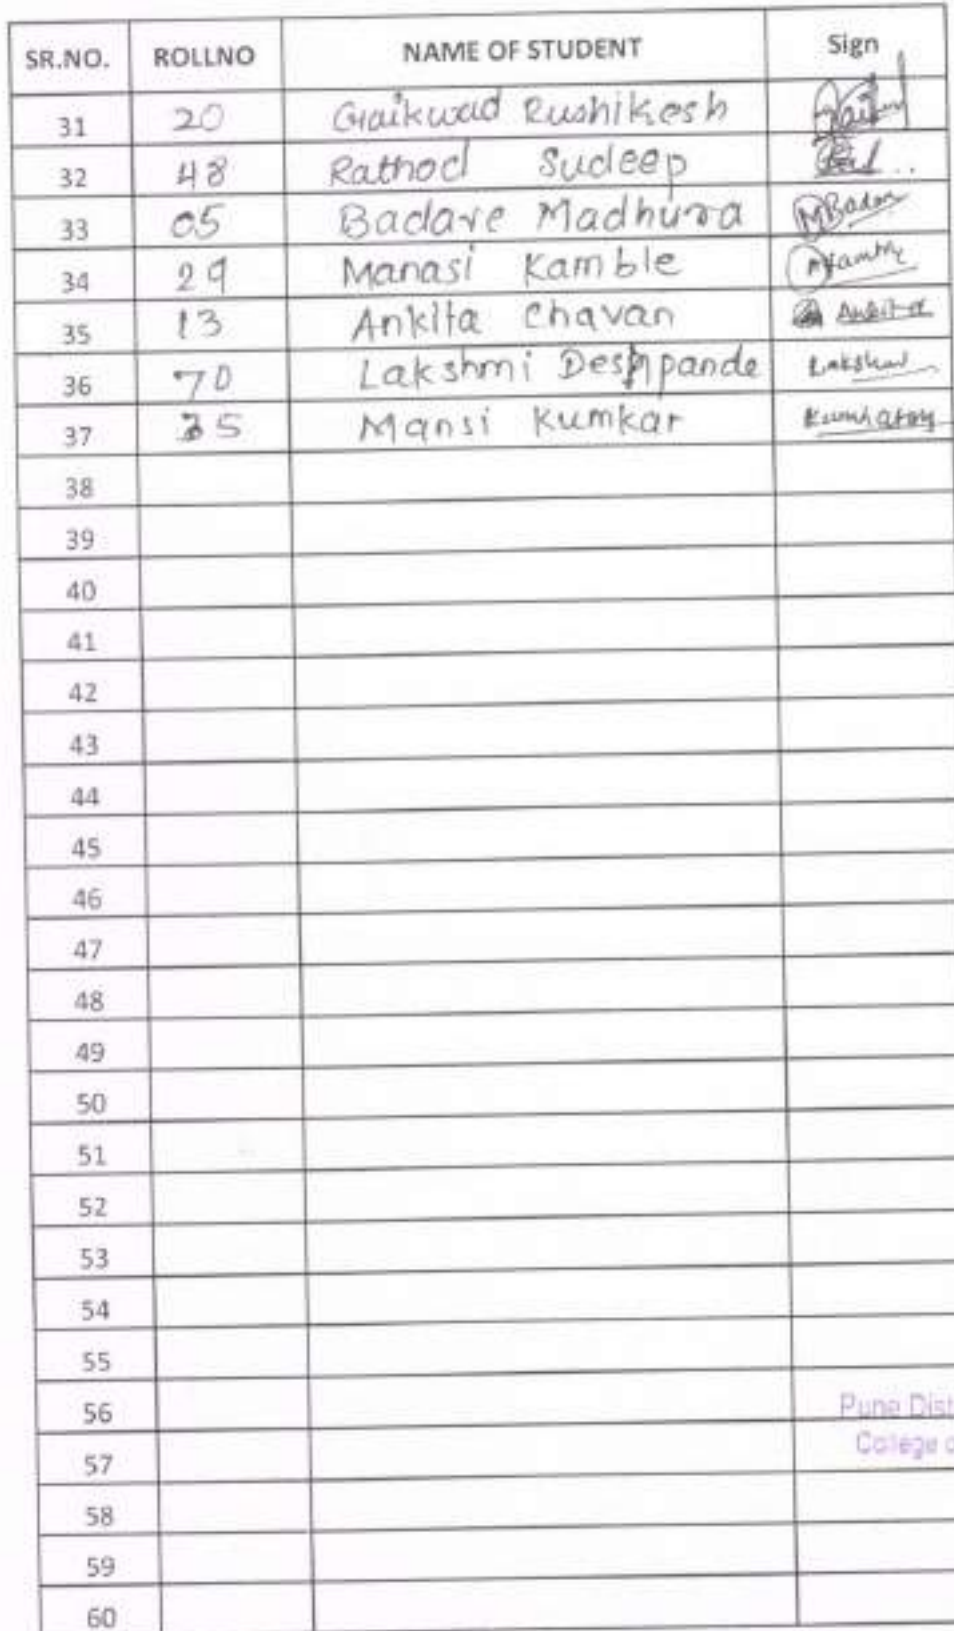 SR.NO. ROLLNO NAME OF STUDENT Sign
31 20 Gaikwad Rushikesh
32 48 Rathod Sudeep
33 05 Badave Madhura MBadave
34 29 Manasi Kamble
35 13 Ankita Chavan Ankita
36 70 Lakshmi Deshpande
37 35 Mansi Kumkar
38
39
40
41
42
43
44
45
46
47
48
49
50
51
52
53
54
55
56 Pune Dist
57 College o
58
59
60